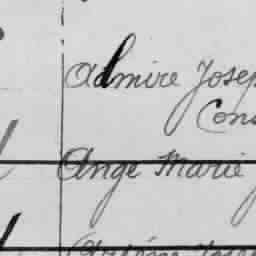 Admire Josep
Cons
Ange Marie